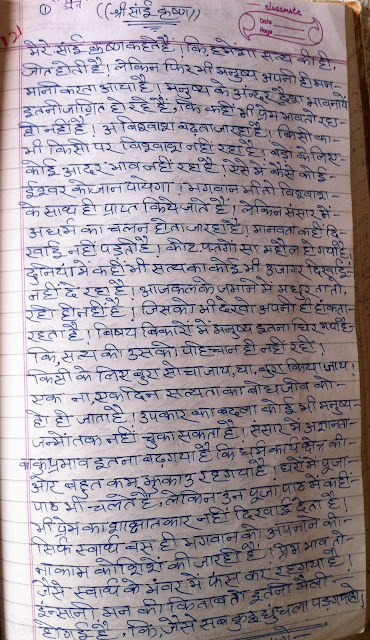 ① ((श्री साईं कृष्ण))
classmate
Date
Page
मेरे साईं कृष्ण कहते हैं! कि, हमेशा सत्य की ही,
जीत होती है! लेकिन फिर भी मनुष्य अपनी ही मन-
मानी करता आया है! मनुष्य के अंदर ईर्ष्या भावनायें
इतनी जागित हो रही हैं, कि कहीं भी प्रेम भाव तो रहा-
ही नहीं है! अविश्वाश बढ़ता जा रहा है! किसी का-
भी किसी पर विश्वाश नहीं रहा है! बड़ों के लिए-
कोई आदर भाव नहीं रहा है! ऐसे में कैसे कोई-
ईश्वर को जान पायेगा! भगवान भी तो विश्वाश-
के साथ ही प्राप्त किये जाते हैं! लेकिन संसार में-
अधर्म का चलन होता जा रहा है! मानवता कहीं दि-
खाई नहीं पड़ती है! कीट पतंगों सा महौल हो गया है!
दुनिया में कहीं भी सत्य का कोई भी उजागर दिखाई-
नहीं दे रहा है! आजकल के जमाने में मधुरता तो,
रही ही नहीं है! जिसको भी देखो अपनी ही हांकता-
रहता है! बिषय बिकारों में मनुष्य इतना घिर गया है-
कि, सत्य की उसको पहिचान ही नहीं रही!
किसी के लिए बुरा सोचा जाय, या, बुरा किया जाय!
एक ना, एक दिन सत्यता का बोध जीव को-
हो ही जाता है! उपकार का बदला कोई भी मनुष्य-
जन्मों तक नहीं चुका सकता है! संसार में अज्ञानता-
का प्रभाव इतना बढ़ गया है कि धर्म कार्य क्षेत्र की-
ओर बहुत कम झुकाउ रह गया है! घरों में पूजा-
पाठ भी चलते हैं, लेकिन उन पूजा पाठ में कहीं-
भी प्रेम का साक्षातकार नहीं दिखाई देता है!
सिर्फ स्वार्थ बस ही भगवान को अपनाने की-
नाकाम कोशिश की जा रही है! प्रेम भाव तो-
जैसे स्वार्थ के भंवर में फंस कर रह गया है!
इन्सानी मन की किताब तो इतनी मैली-
हो गई है, कि, जैसे सब कुछ धुंधला पड़ गया हो!